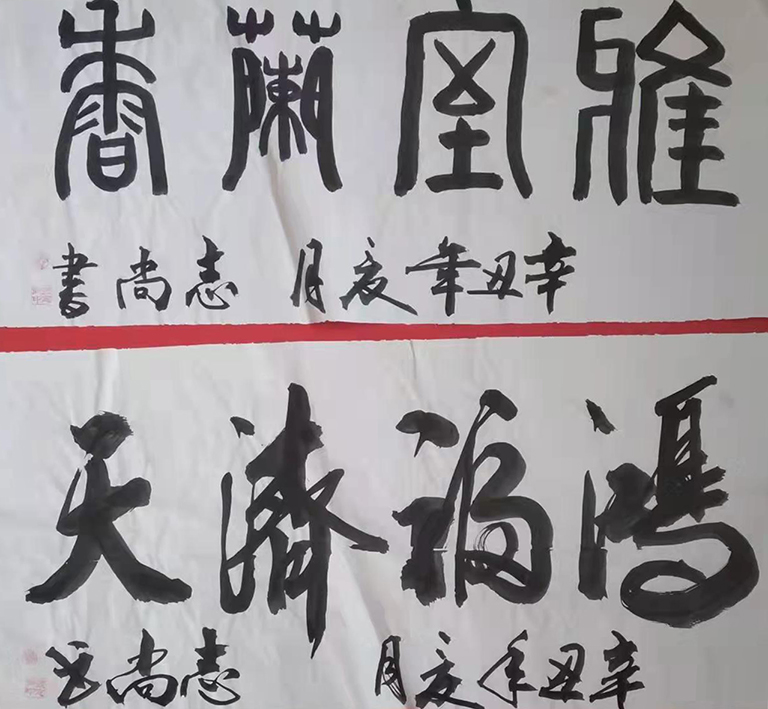 雅室蘭香
辛丑年夏月 志尚書
鴻福濟天
辛丑年夏月 志尚书